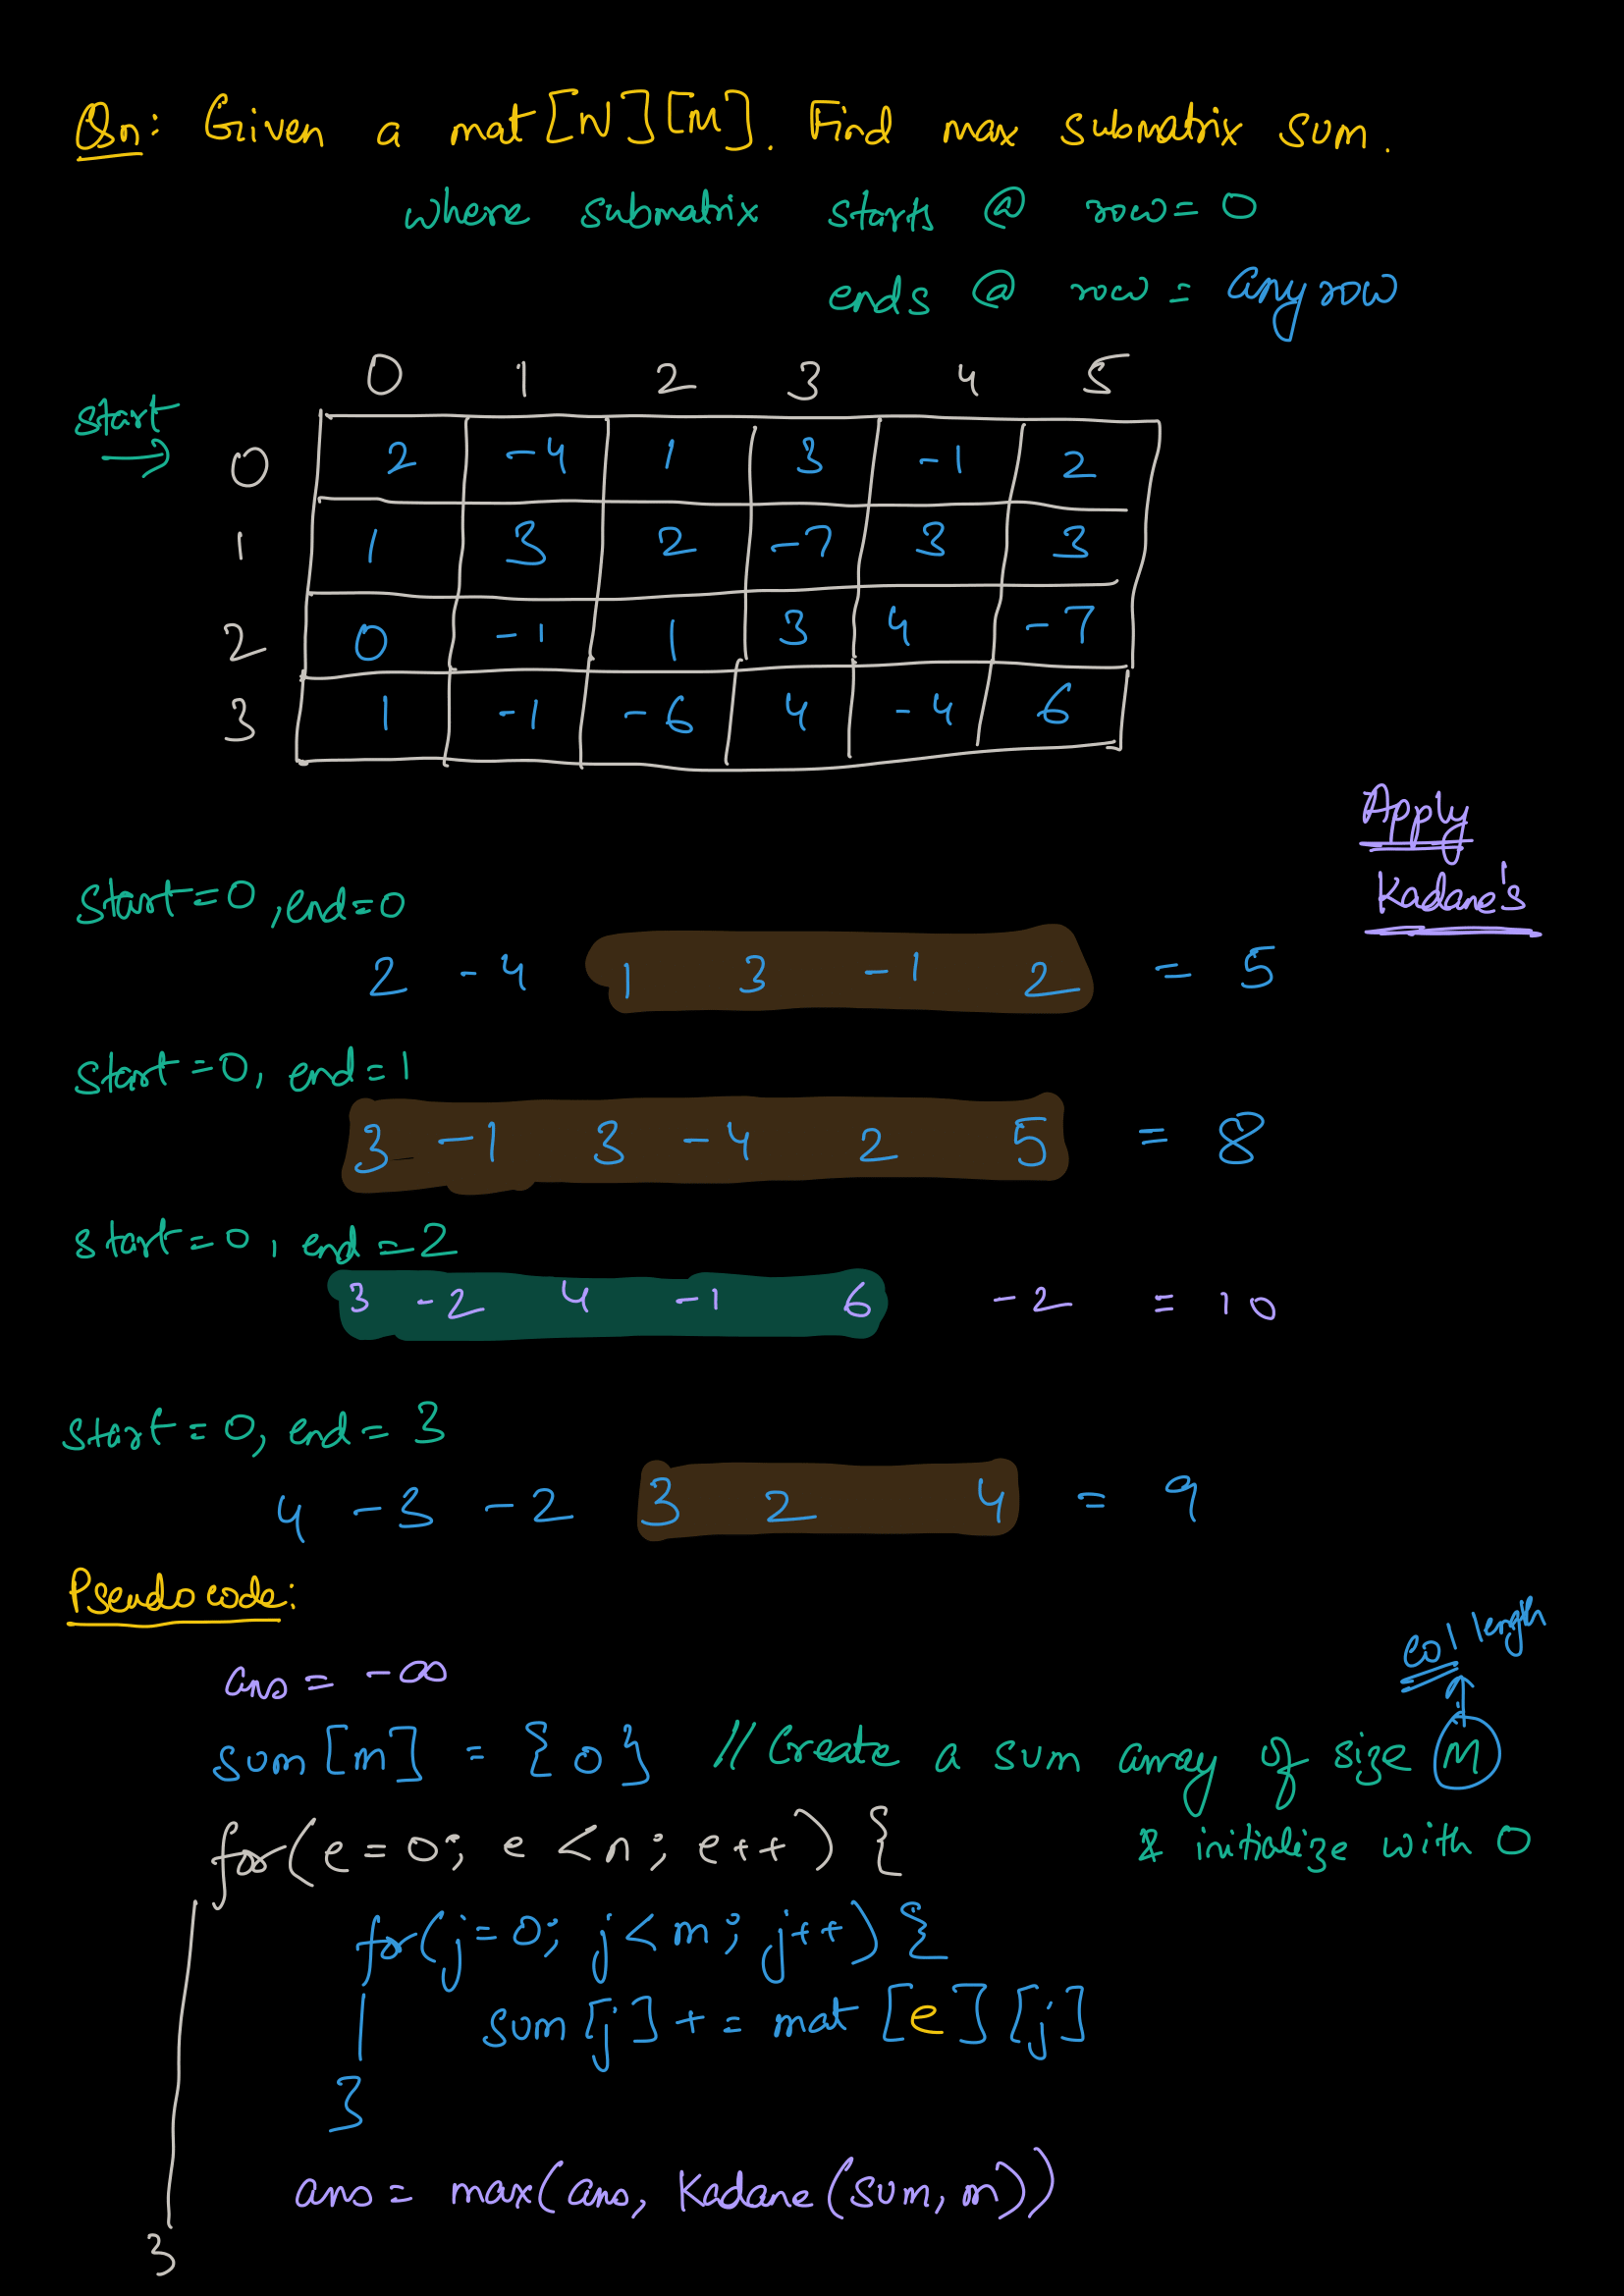 Qn: Given a mat[N][M]. Find max submatrix sum.
where submatrix starts @ row=0
ends @ row = any row
0 1 2 3 4 5
start →
0 2 -4 1 3 -1 2
1 1 3 2 -7 3 3
2 0 -1 1 3 4 -7
3 1 -1 -6 4 -4 6
Apply
Kadane's
start=0, end=0
2 -4 1 3 -1 2 = 5
start=0, end=1
3 -1 3 -4 2 5 = 8
start=0, end=2
3 -2 4 -1 6 -2 = 10
start=0, end=3
4 -3 -2 3 2 4 = 9
Pseudo code:
col length
ans = -∞
sum[m] = {0} // Create a sum array of size M
& initialize with 0
for(e=0; e<n; e++) {
for(j=0; j<m; j++) {
sum[j] += mat[e][j]
}
ans = max(ans, Kadane(sum, m))
}